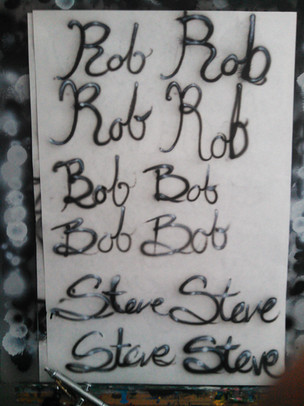 Rob Rob
Rob Rob
Bob Bob
Bob Bob
Steve Steve
Steve Steve